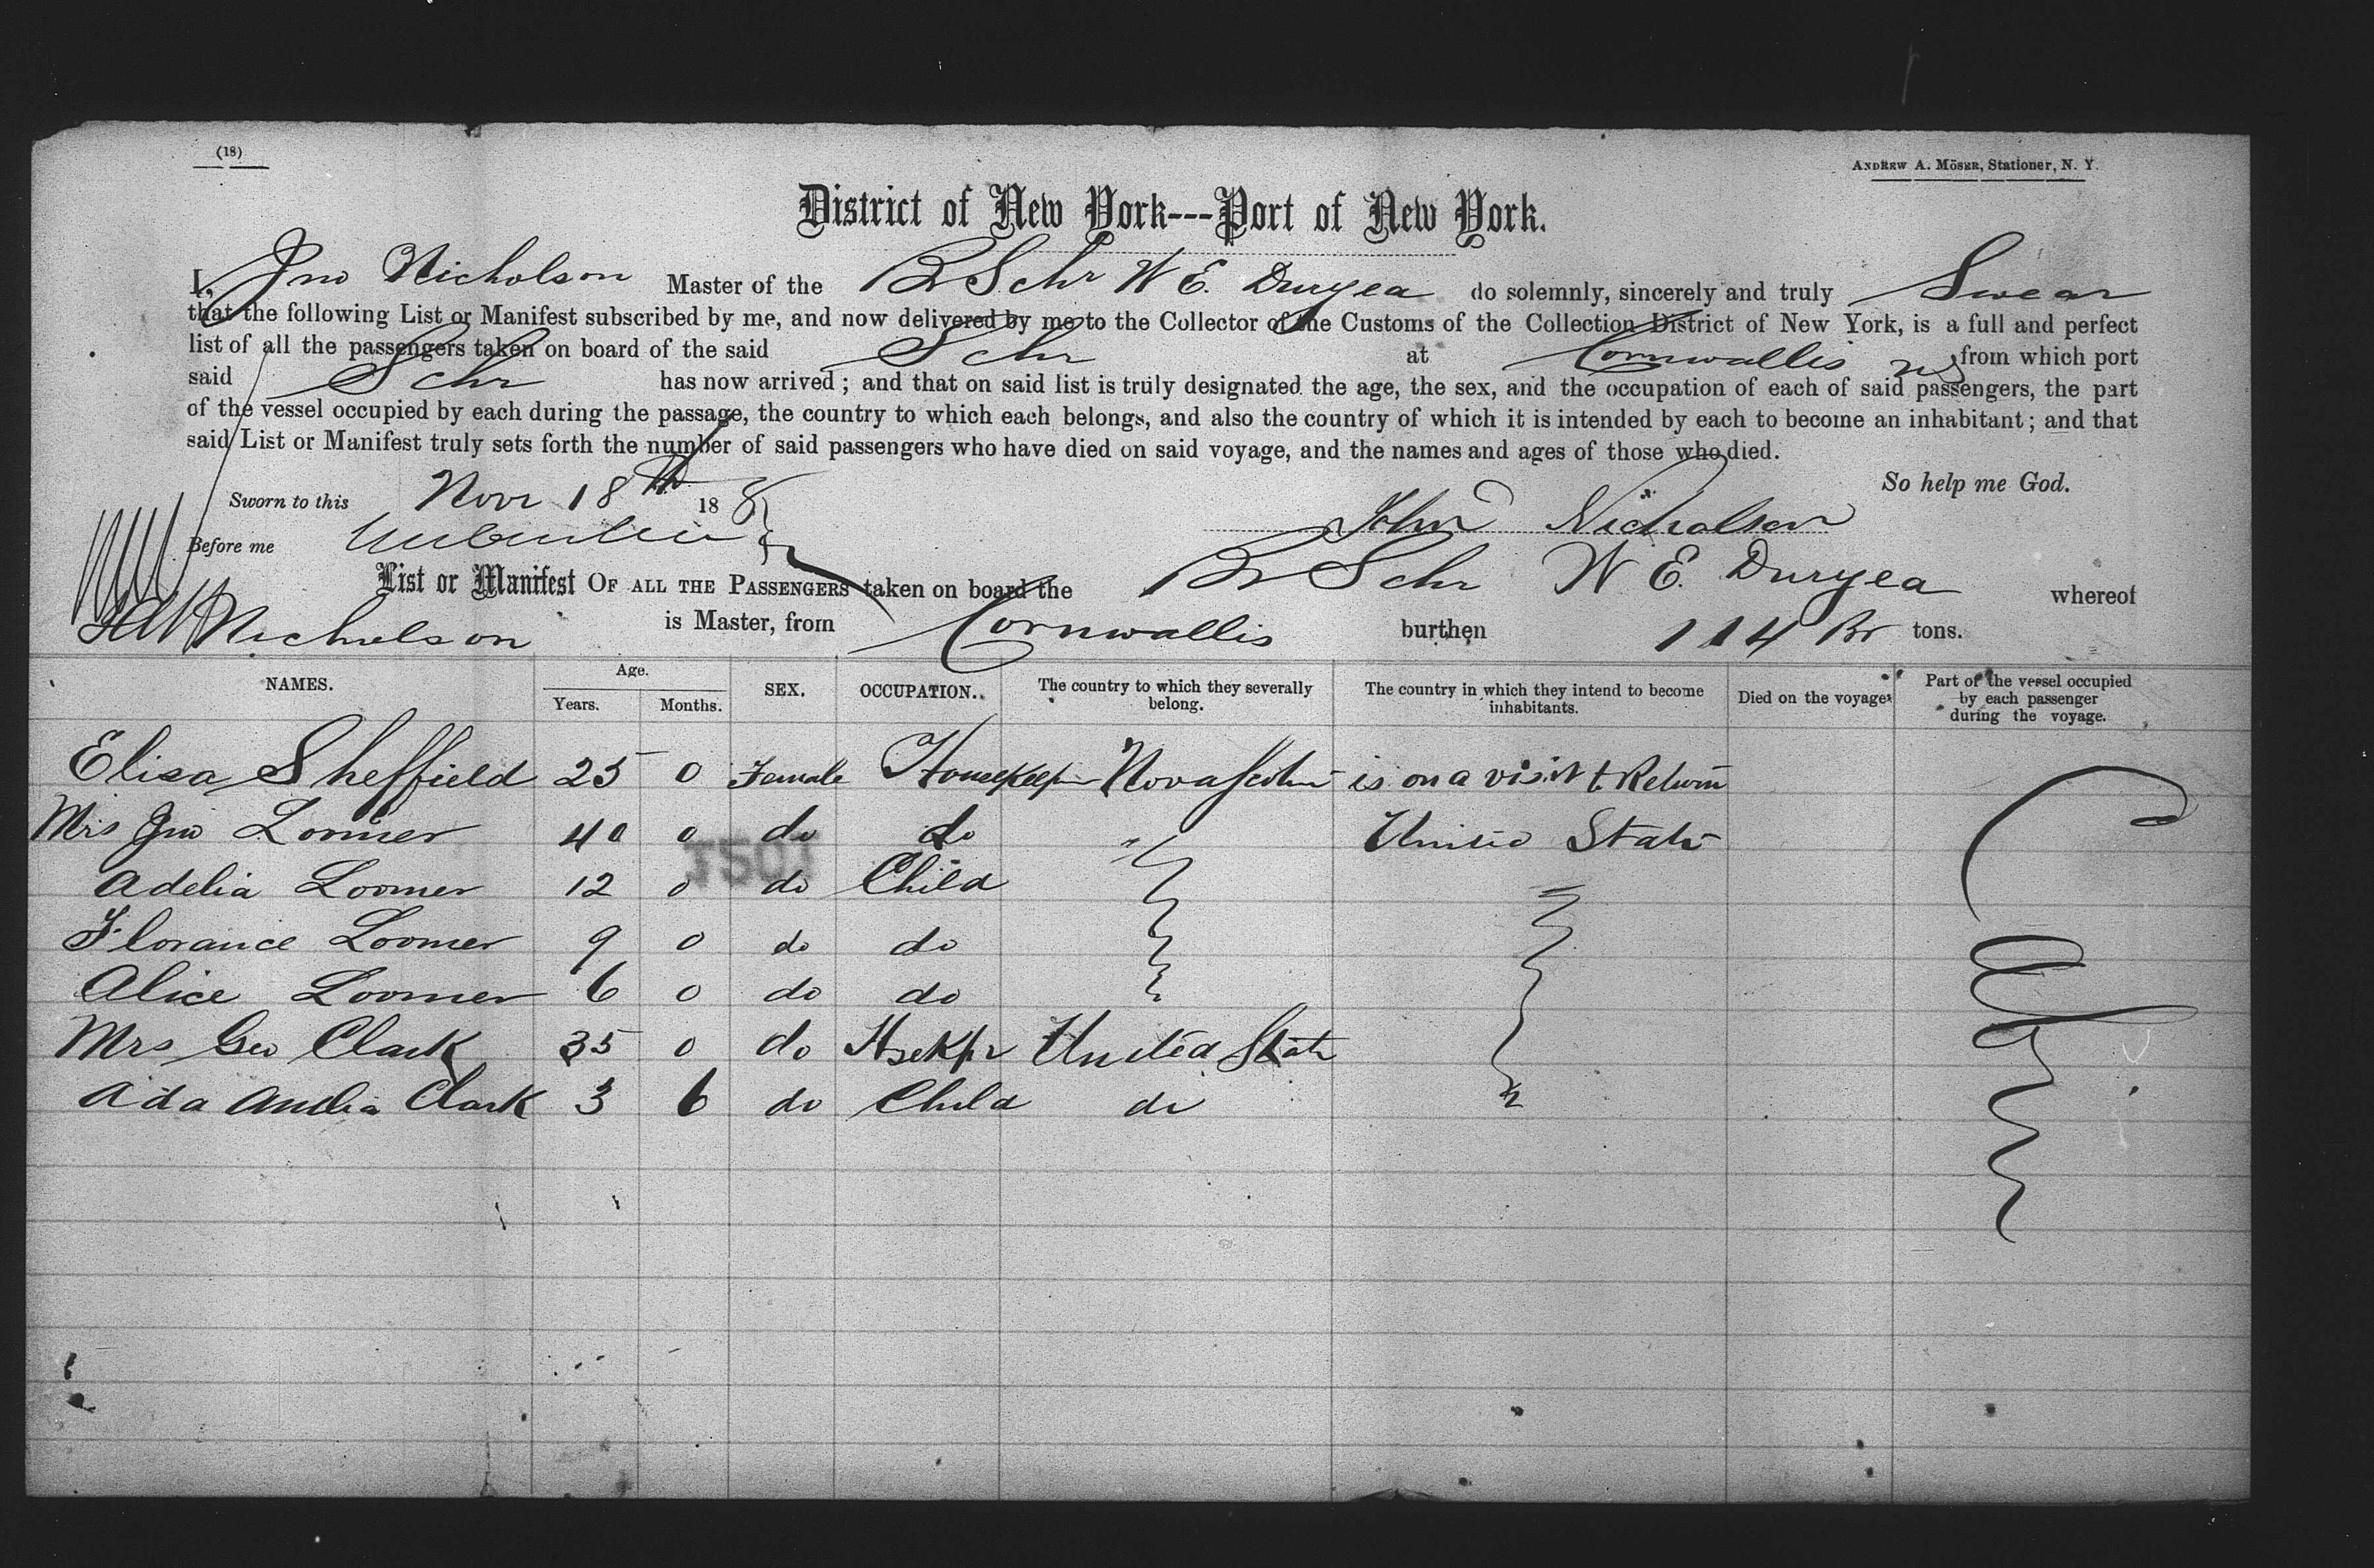 (18)
ANDREW A. MÖSER, Stationer, N. Y.
District of New York---Port of New York.
I, Jno Nicholson Master of the Br Schr W E. Duryea do solemnly, sincerely and truly Swear
that the following List or Manifest subscribed by me, and now delivered by me to the Collector of the Customs of the Collection District of New York, is a full and perfect
list of all the passengers taken on board of the said Schr at Cornwallis NS from which port
said Schr has now arrived; and that on said list is truly designated the age, the sex, and the occupation of each of said passengers, the part
of the vessel occupied by each during the passage, the country to which each belongs, and also the country of which it is intended by each to become an inhabitant; and that
said List or Manifest truly sets forth the number of said passengers who have died on said voyage, and the names and ages of those who died.
So help me God.
Sworn to this Novr 18th 188
John Nicholson
Before me
List or Manifest OF ALL THE PASSENGERS taken on board the Br Schr W E. Duryea whereof
Nicholson is Master, from Cornwallis burthen 114 tons.
NAMES. Age. Years. Months. SEX. OCCUPATION. The country to which they severally belong. The country in which they intend to become inhabitants. Died on the voyage. Part of the vessel occupied by each passenger during the voyage.
Elisa Sheffield 25 0 Female Housekeepr Nova Scotia is on a visit to Return
Mrs Jno Loomer 40 0 do do " United State
Adelia Loomer 12 0 do Child "
Florance Loomer 9 0 do do
Alice Loomer 6 0 do do
Mrs Geo Clark 35 0 do Hsekpr United State
Ada Amelia Clark 3 6 do Child do